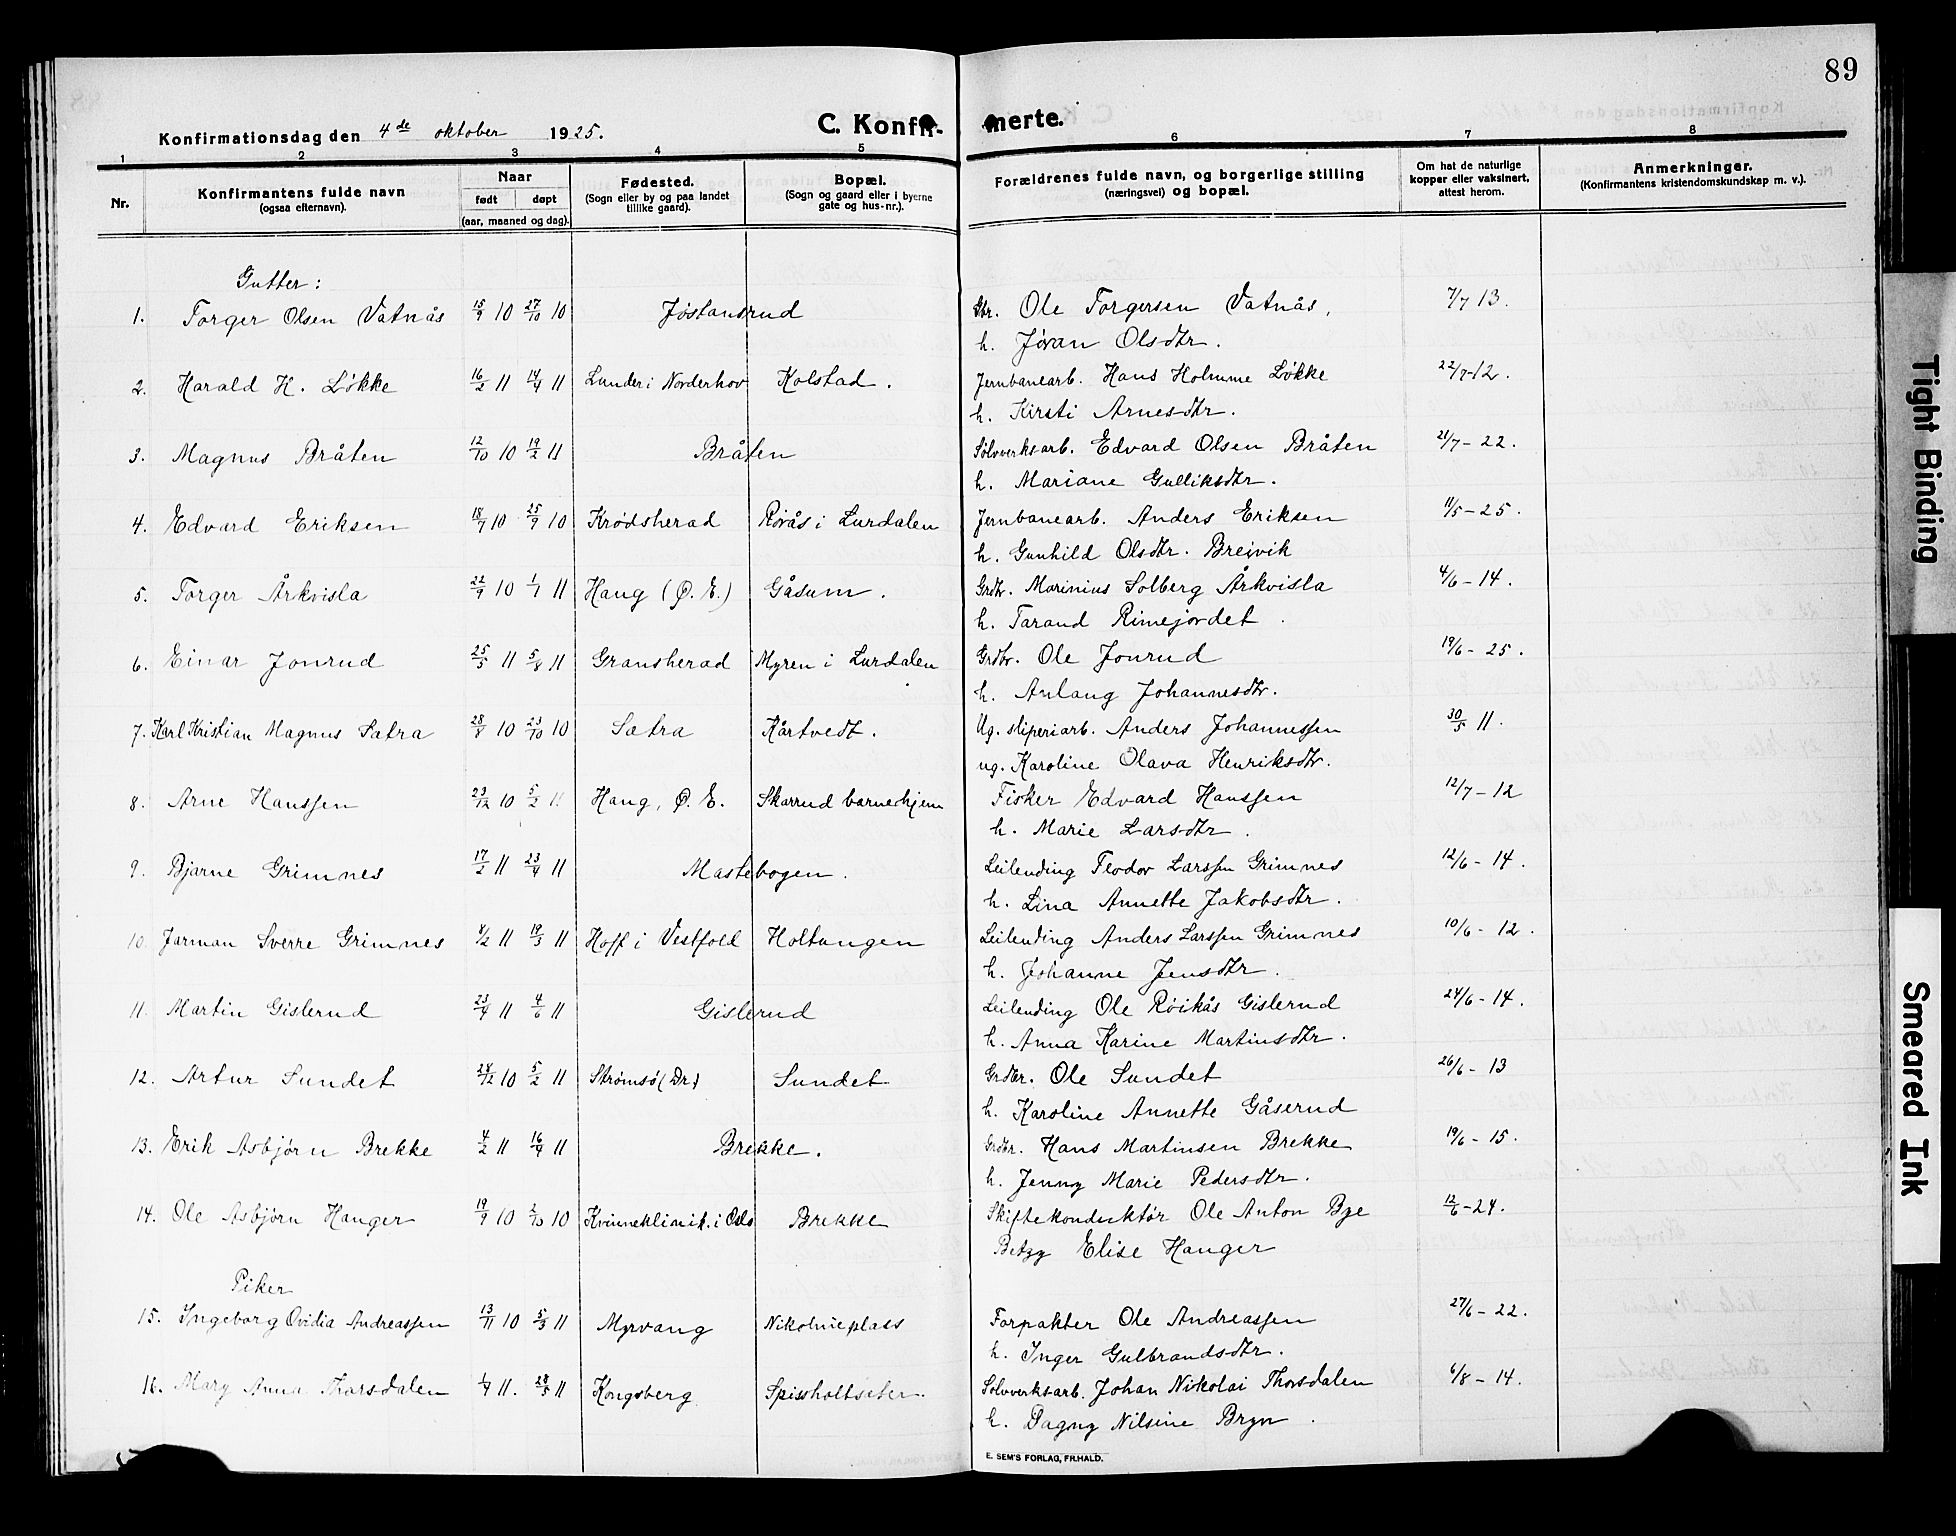 89
Konfirmationsdag den 4de oktober 1925.
C. Konfirmerte.
1 2 3 4 5 6 7 8
Nr.
Konfirmantens fulde navn
(ogsaa efternavn).
Naar
født døpt
(aar, maaned og dag).
Fødested.
(Sogn eller by og paa landet
tillike gaard).
Bopæl.
(Sogn og gaard eller i byerne
gate og hus-nr.).
Forældrenes fulde navn, og borgerlige stilling
(næringsvei) og bopæl.
Om hat de naturlige
kopper eller vaksinert,
attest herom.
Anmerkninger.
(Konfirmantens kristendomskundskap m. v.).
Gutter:
1. Torger Olsen Vatnås 15/9 10 27/10 10 Jøstansrud Gbr. Ole Torgersen Vatnås, 7/7 13.
h. Jøran Olsdtr.
2. Harald H. Løkke 16/2 11 14/4 11 Lunder i Norderhov Kolstad. Jernbanearb. Hans Holmme Løkke 22/7-12.
h. Kirsti Arnesdtr.
3. Magnus Bråten 12/10 10 19/2 11 Bråten Sølvverksarb. Edvard Olsen Bråten 21/7-22.
h. Mariane Gulliksdtr.
4. Edvard Eriksen 18/7 10 25/9 10 Krødsherad Rørås i Lurdalen Jernbanearb. Anders Eriksen 11/5-25.
h. Gunhild Olsdtr. Breivik
5. Torger Årkvisla 22/9 10 1/1 11 Haug (Ø. E.) Gåsum. Grdbr. Marinius Solberg Årkvisla 4/6-14.
h. Tarand Rimejordet
6. Einar Jonrud 25/5 11 5/8 11 Gransherad Myren i Lurdalen Grdbr. Ole Jonrud 19/6-25.
h. Anlaug Johannesdtr.
7. Karl Kristian Magnus Sætra 28/8 10 23/10 10 Sætra Kårtvedt. Ug. sliperiarb. Anders Johannessen 30/5 11.
ug. Karoline Olava Henriksdtr.
8. Arne Hanssen 23/12 10 5/2 11 Haug, Ø. E. Skarrud barnehjem Fisker Edvard Hanssen 12/7-12
h. Marie Larsdtr.
9. Bjarne Grimnes 17/2 11 23/4 11 Mastebogen. Leilending Teodor Larssen Grimnes 12/6-14.
h. Lina Annette Jakobsdtr.
10. Jarman Sverre Grimnes 4/2 11 19/3 11 Hoff i Vestfold Holtangen Leilending Anders Larssen Grimnes 10/6-12.
h. Johanne Jensdtr.
11. Martin Gislerud 23/4 11 4/6 11 Gislerud Leilending Ole Røikås Gislerud 24/6-14.
h. Anna Karine Martinsdtr.
12. Artur Sundet 24/12 10 5/2 11 Strømsø (Dr.) Sundet Grdbr. Ole Sundet 26/6-13
h. Karoline Annette Gåserud
13. Erik Asbjørn Brekke 4/2 11 16/4 11 Brekke. Grdbr. Hans Martinsen Brekke 19/6-15.
h. Jenny Marie Pedersdtr.
14. Ole Asbjørn Hanger 19/9 10 2/10 10 Kvinneklinik. i Oslo Brekke Skiftekonduktør Ole Anton Bye 12/6-24.
Betzy Elise Hanger
Piker
15. Ingeborg Ovidia Andreassen 13/11 10 5/3 11 Myrvang Nikolineplass Forpakter Ole Andreassen 27/6-22.
h. Inger Gulbrandsdtr.
16. Mary Anna Thorsdalen 1/4 11. 28/5 11 Kongsberg Spissholtseter. Sølvverksarb. Johan Nikolai Thorsdalen 6/8-14.
h. Dagny Nilsine Bryn
E. SEM'S FORLAG, FR.HALD.
Tight Binding
Smeared Ink